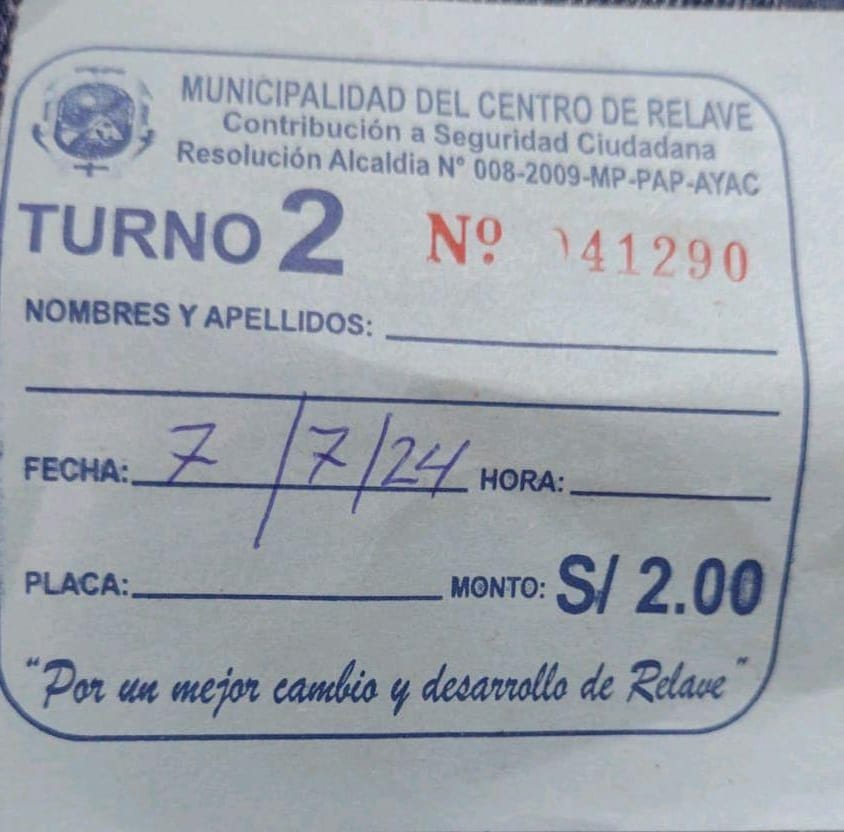 MUNICIPALIDAD DEL CENTRO DE RELAVE
Contribución a Seguridad Ciudadana
Resolución Alcaldia N° 008-2009-MP-PAP-AYAC
TURNO 2 Nº 041290
NOMBRES Y APELLIDOS:
FECHA: 7/7/24 HORA:
PLACA: MONTO: S/ 2.00
"Por un mejor cambio y desarrollo de Relave"